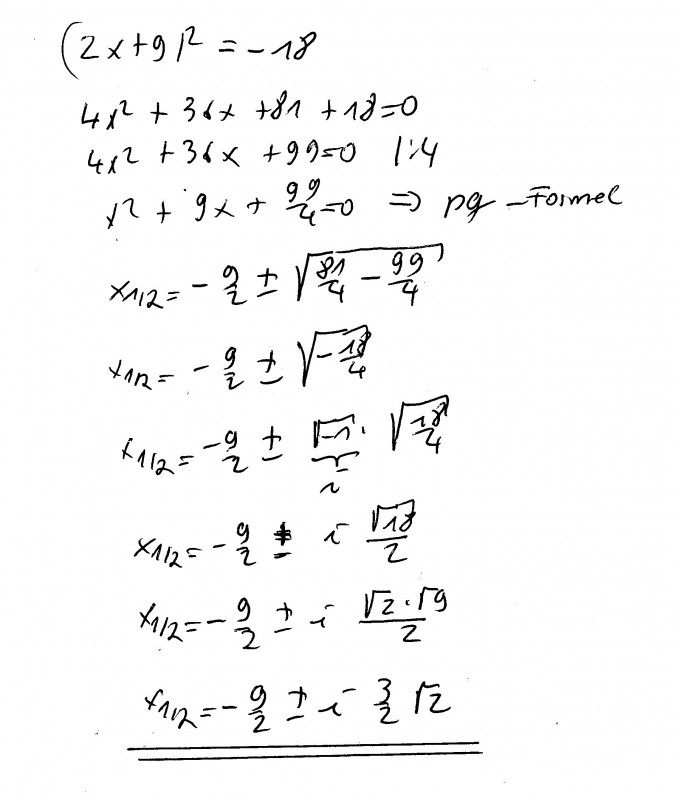 (2x+9)² = -18
4x² + 36x + 81 + 18 = 0
4x² + 36x + 99 = 0 |:4
x² + 9x + 99/4 = 0 ⇒ pq-Formel
x1/2 = - 9/2 ± √(81/4 - 99/4)
x1/2 = - 9/2 ± √(-18/4)
x1/2 = - 9/2 ± √-1 · √(18/4)
i
x1/2 = - 9/2 ± i √18/2
x1/2 = - 9/2 ± i √2·√9/2
x1/2 = - 9/2 ± i 3/2 √2